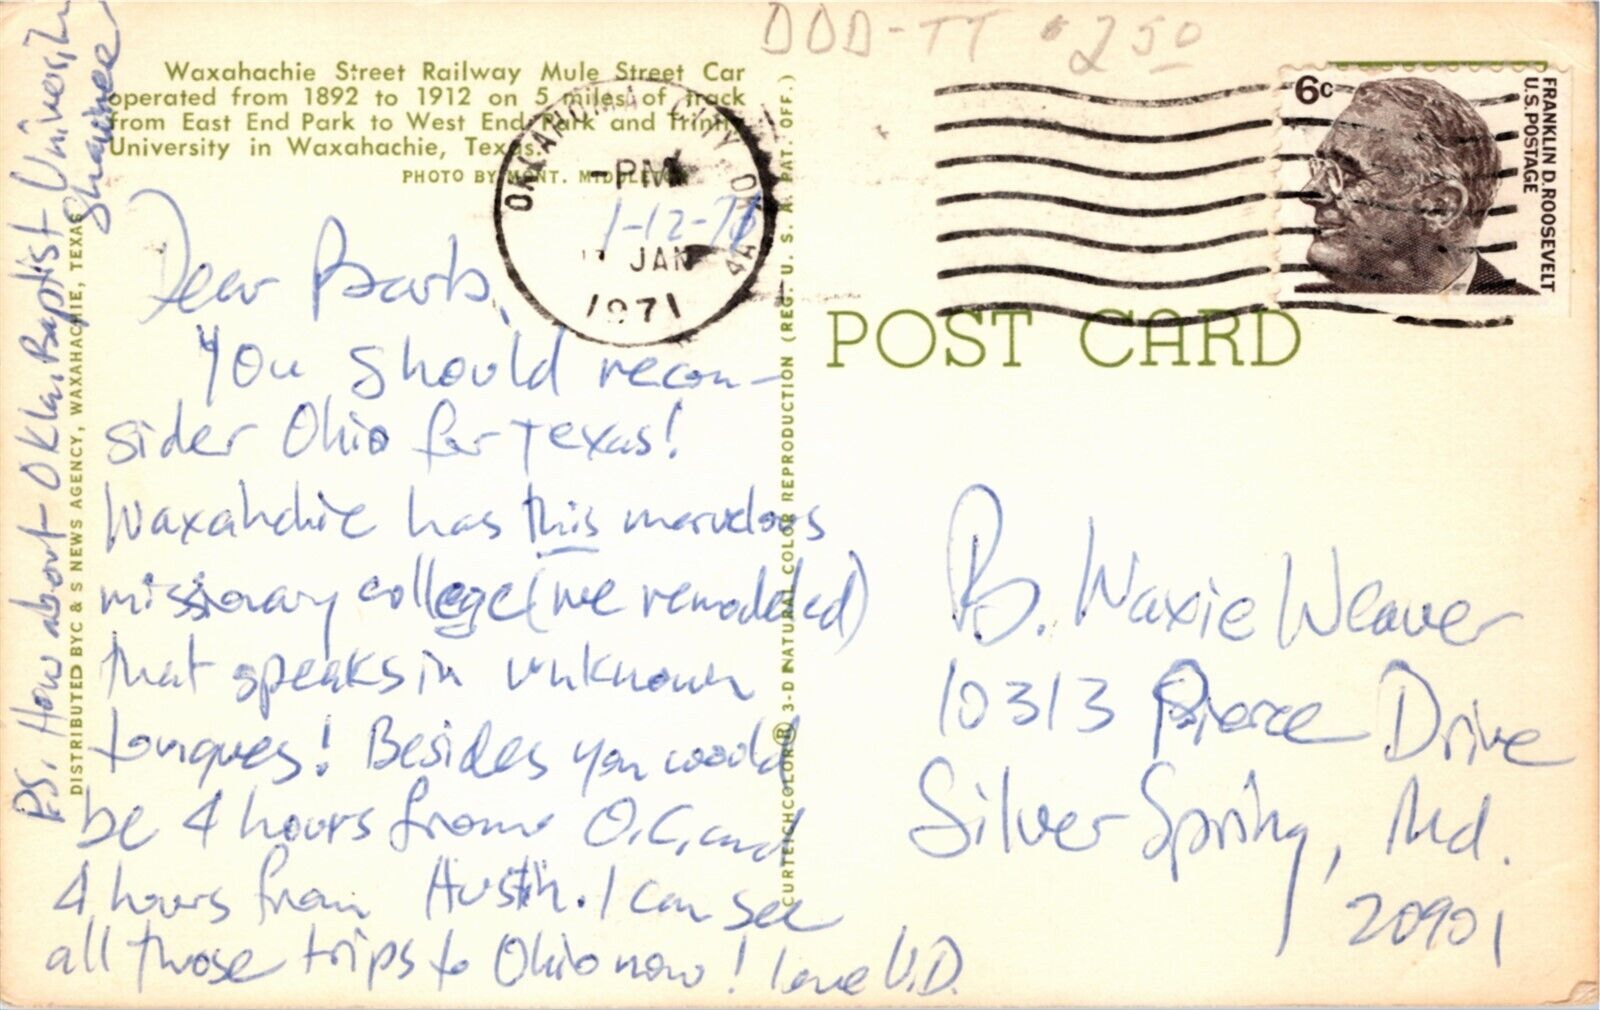 DOD-TT $2.50
Waxahachie Street Railway Mule Street Car
operated from 1892 to 1912 on 5 miles of track
from East End Park to West End Park and Trinity
University in Waxahachie, Texas.
PHOTO BY MONT. MIDDLETON
OKLAHOMA CITY OK
PM
JAN
1971
1-12-71
6c
FRANKLIN D. ROOSEVELT
U.S. POSTAGE
POST CARD
Dear Barb,
You should recon-
sider Ohio for Texas!
Waxahachie has this marvelous
missionary college (we remodeled)
that speaks in unknown
tongues! Besides you would
be 4 hours from O.C. and
4 hours from Austin. I can see
all those trips to Ohio now! Love U.D.
P.S. How about Okla. Baptist University
Shawnee
DISTRIBUTED BY C & S NEWS AGENCY, WAXAHACHIE, TEXAS
CURTEICHCOLOR® 3-D NATURAL COLOR REPRODUCTION (REG. U. S. A. PAT. OFF.)
B. Waxie Weaver
10313 Pierce Drive
Silver Spring, Md.
20901